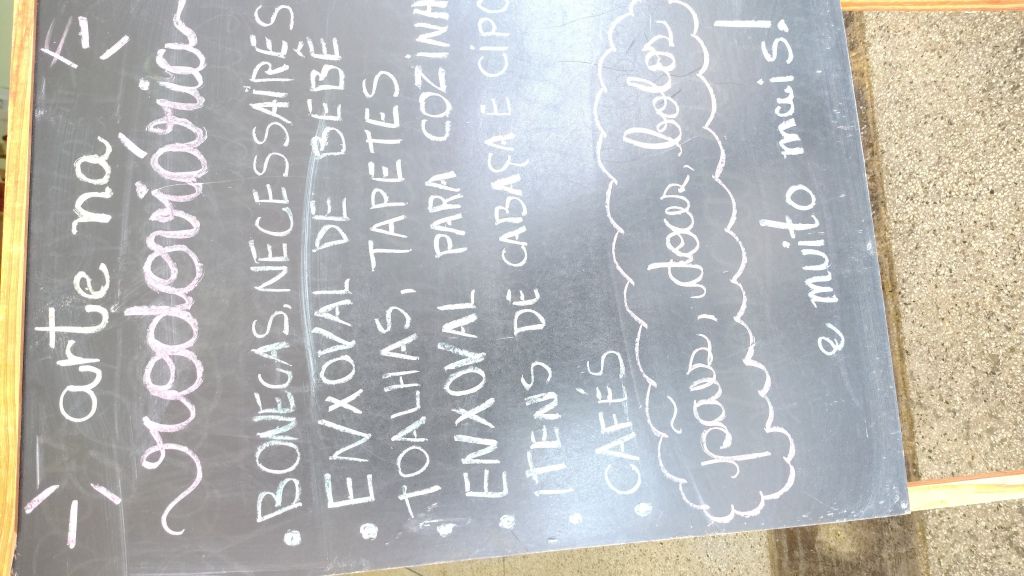 arte na
rodoviária
• BONECAS, NECESSAIRES
• ENXOVAL DE BEBÊ
• TOALHAS, TAPETES
• ENXOVAL PARA COZINHA
• ITENS DE CABAÇA E CIPÓ
• CAFÉS
pães, doces, bolos
e muito mais!